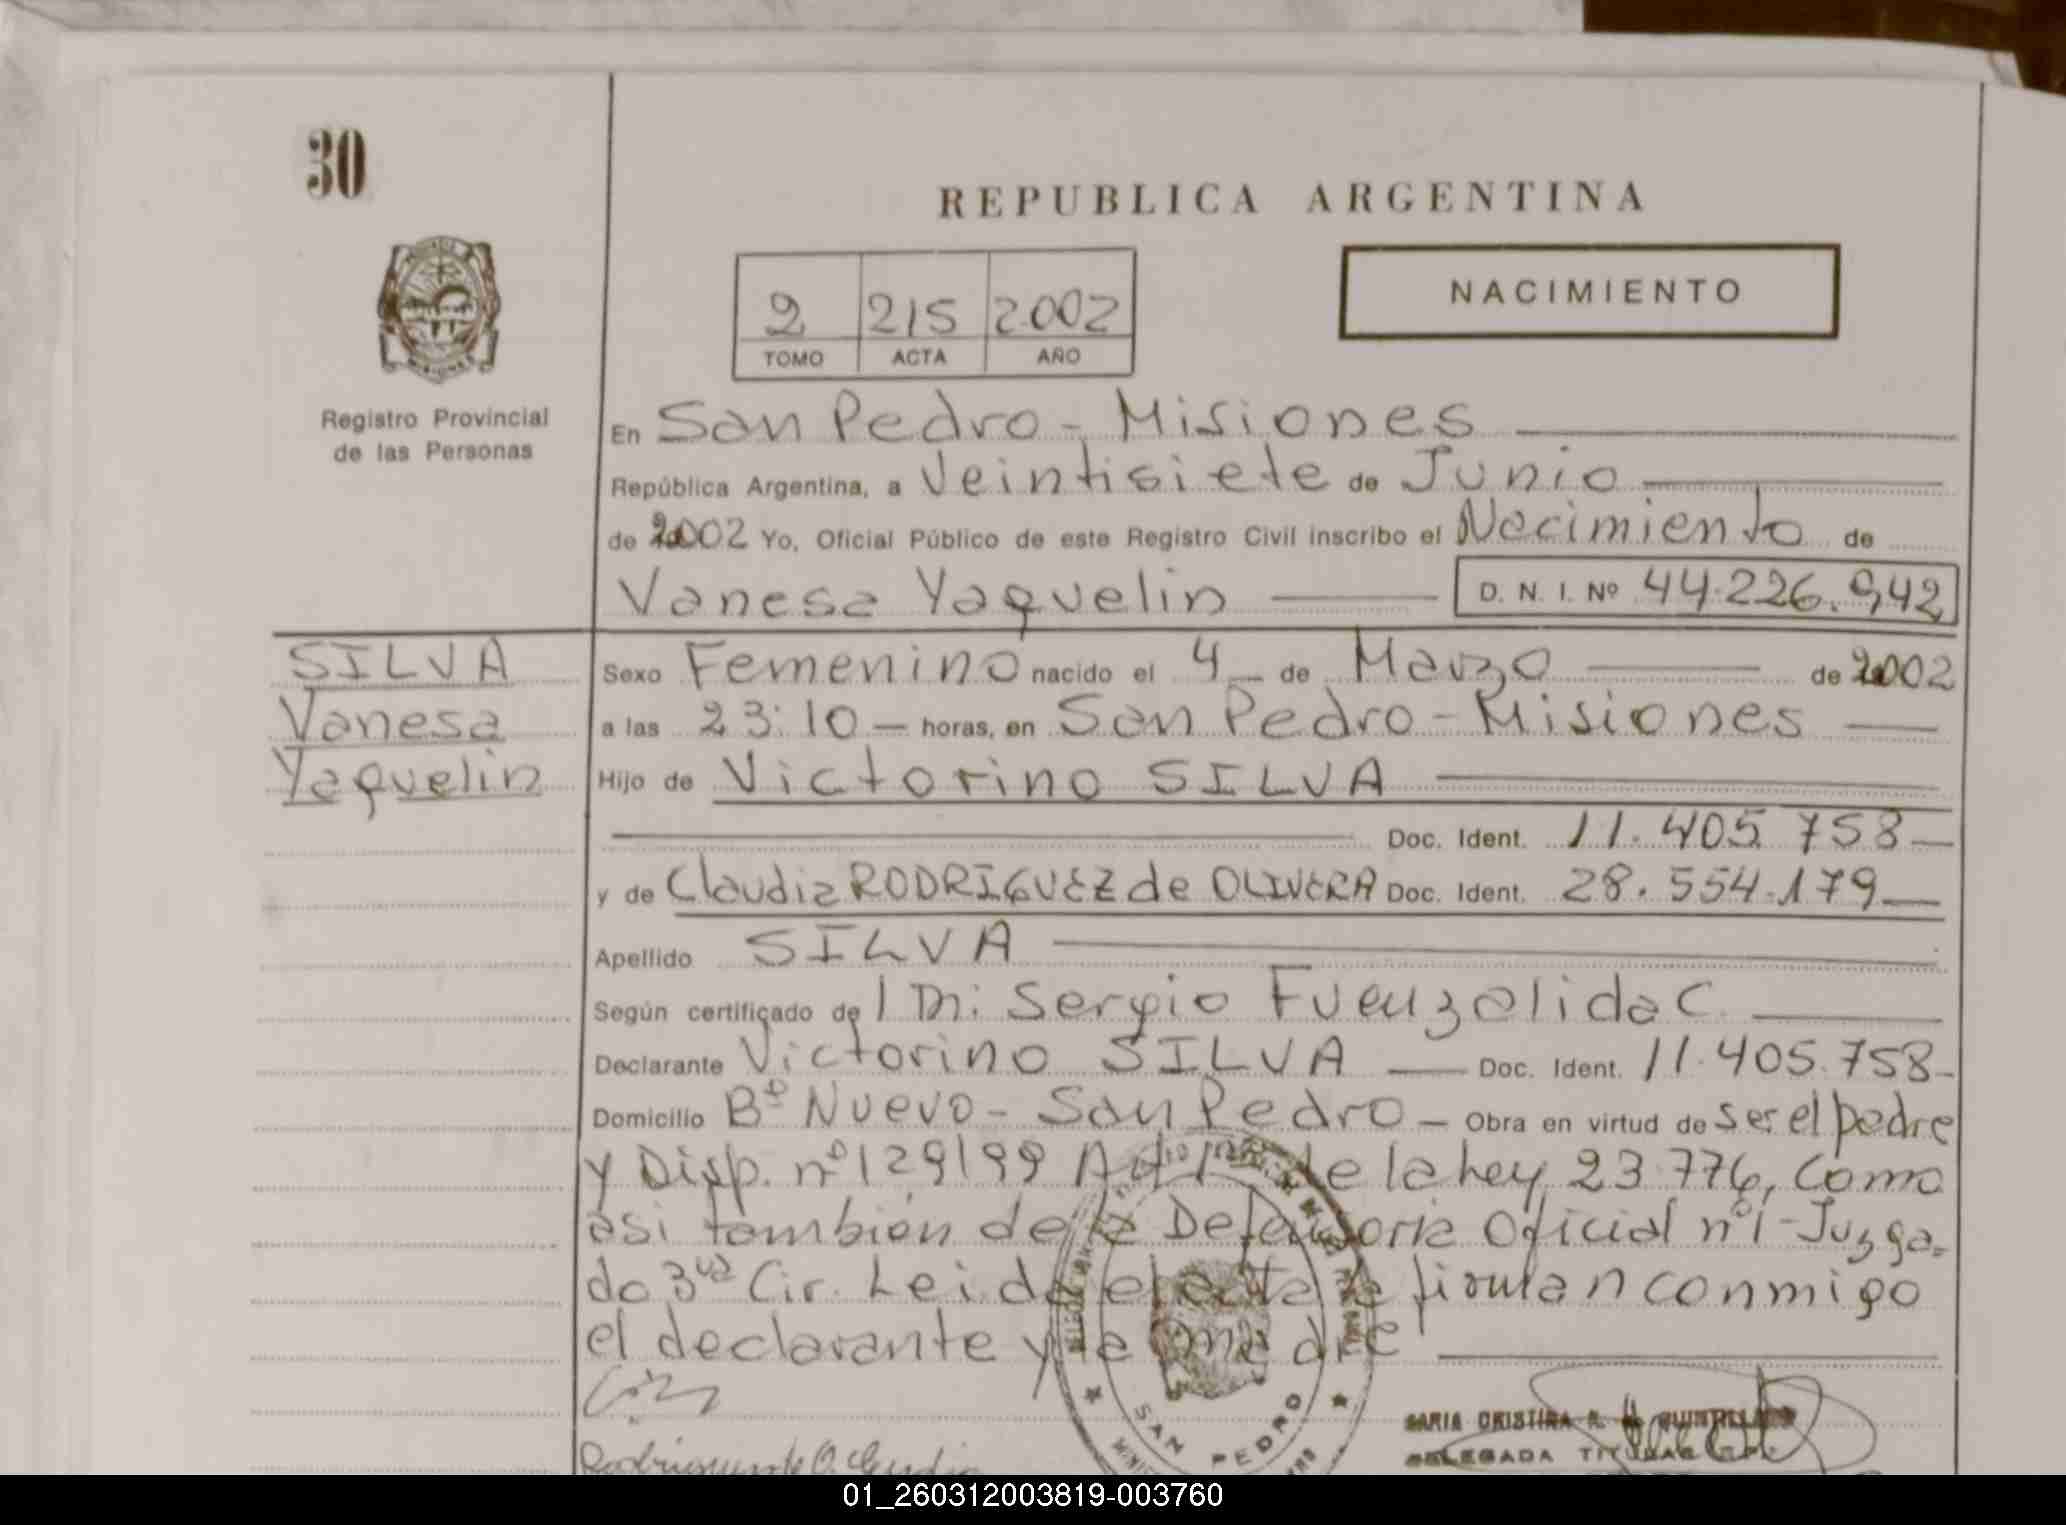 30
REPUBLICA ARGENTINA
NACIMIENTO
2 215 2002
TOMO ACTA AÑO
MISIONES
Registro Provincial
de las Personas
En San Pedro - Misiones
República Argentina, a Veintisiete de Junio
de 2002 Yo, Oficial Público de este Registro Civil inscribo el Nacimiento de
Vanesa Yaquelin D. N. I. Nº 44.226.942
SILVA
Vanesa
Yaquelin
Sexo Femenino nacido el 4 de Marzo de 2002
a las 23:10 - horas, en San Pedro - Misiones
Hijo de Victorino SILVA
Doc. Ident. 11.405.758
y de Claudia RODRIGUEZ de OLIVERA Doc. Ident. 28.554.179
Apellido SILVA
Según certificado de Sergio Fuenzalida C.
Declarante Victorino SILVA Doc. Ident. 11.405.758
Domicilio Bº Nuevo - San Pedro - Obra en virtud de ser el padre
y Disp. nº 129/99 Art 1 de la Ley 23.776, Como
asi tambien de la Defensoria Oficial nº 1 - Juzga-
do 3ra Cir. Leida el acta firman conmigo
el declarante y la madre
SAN PEDRO
MARIA CRISTINA R.
DELEGADA TITULAR
01_260312003819-003760